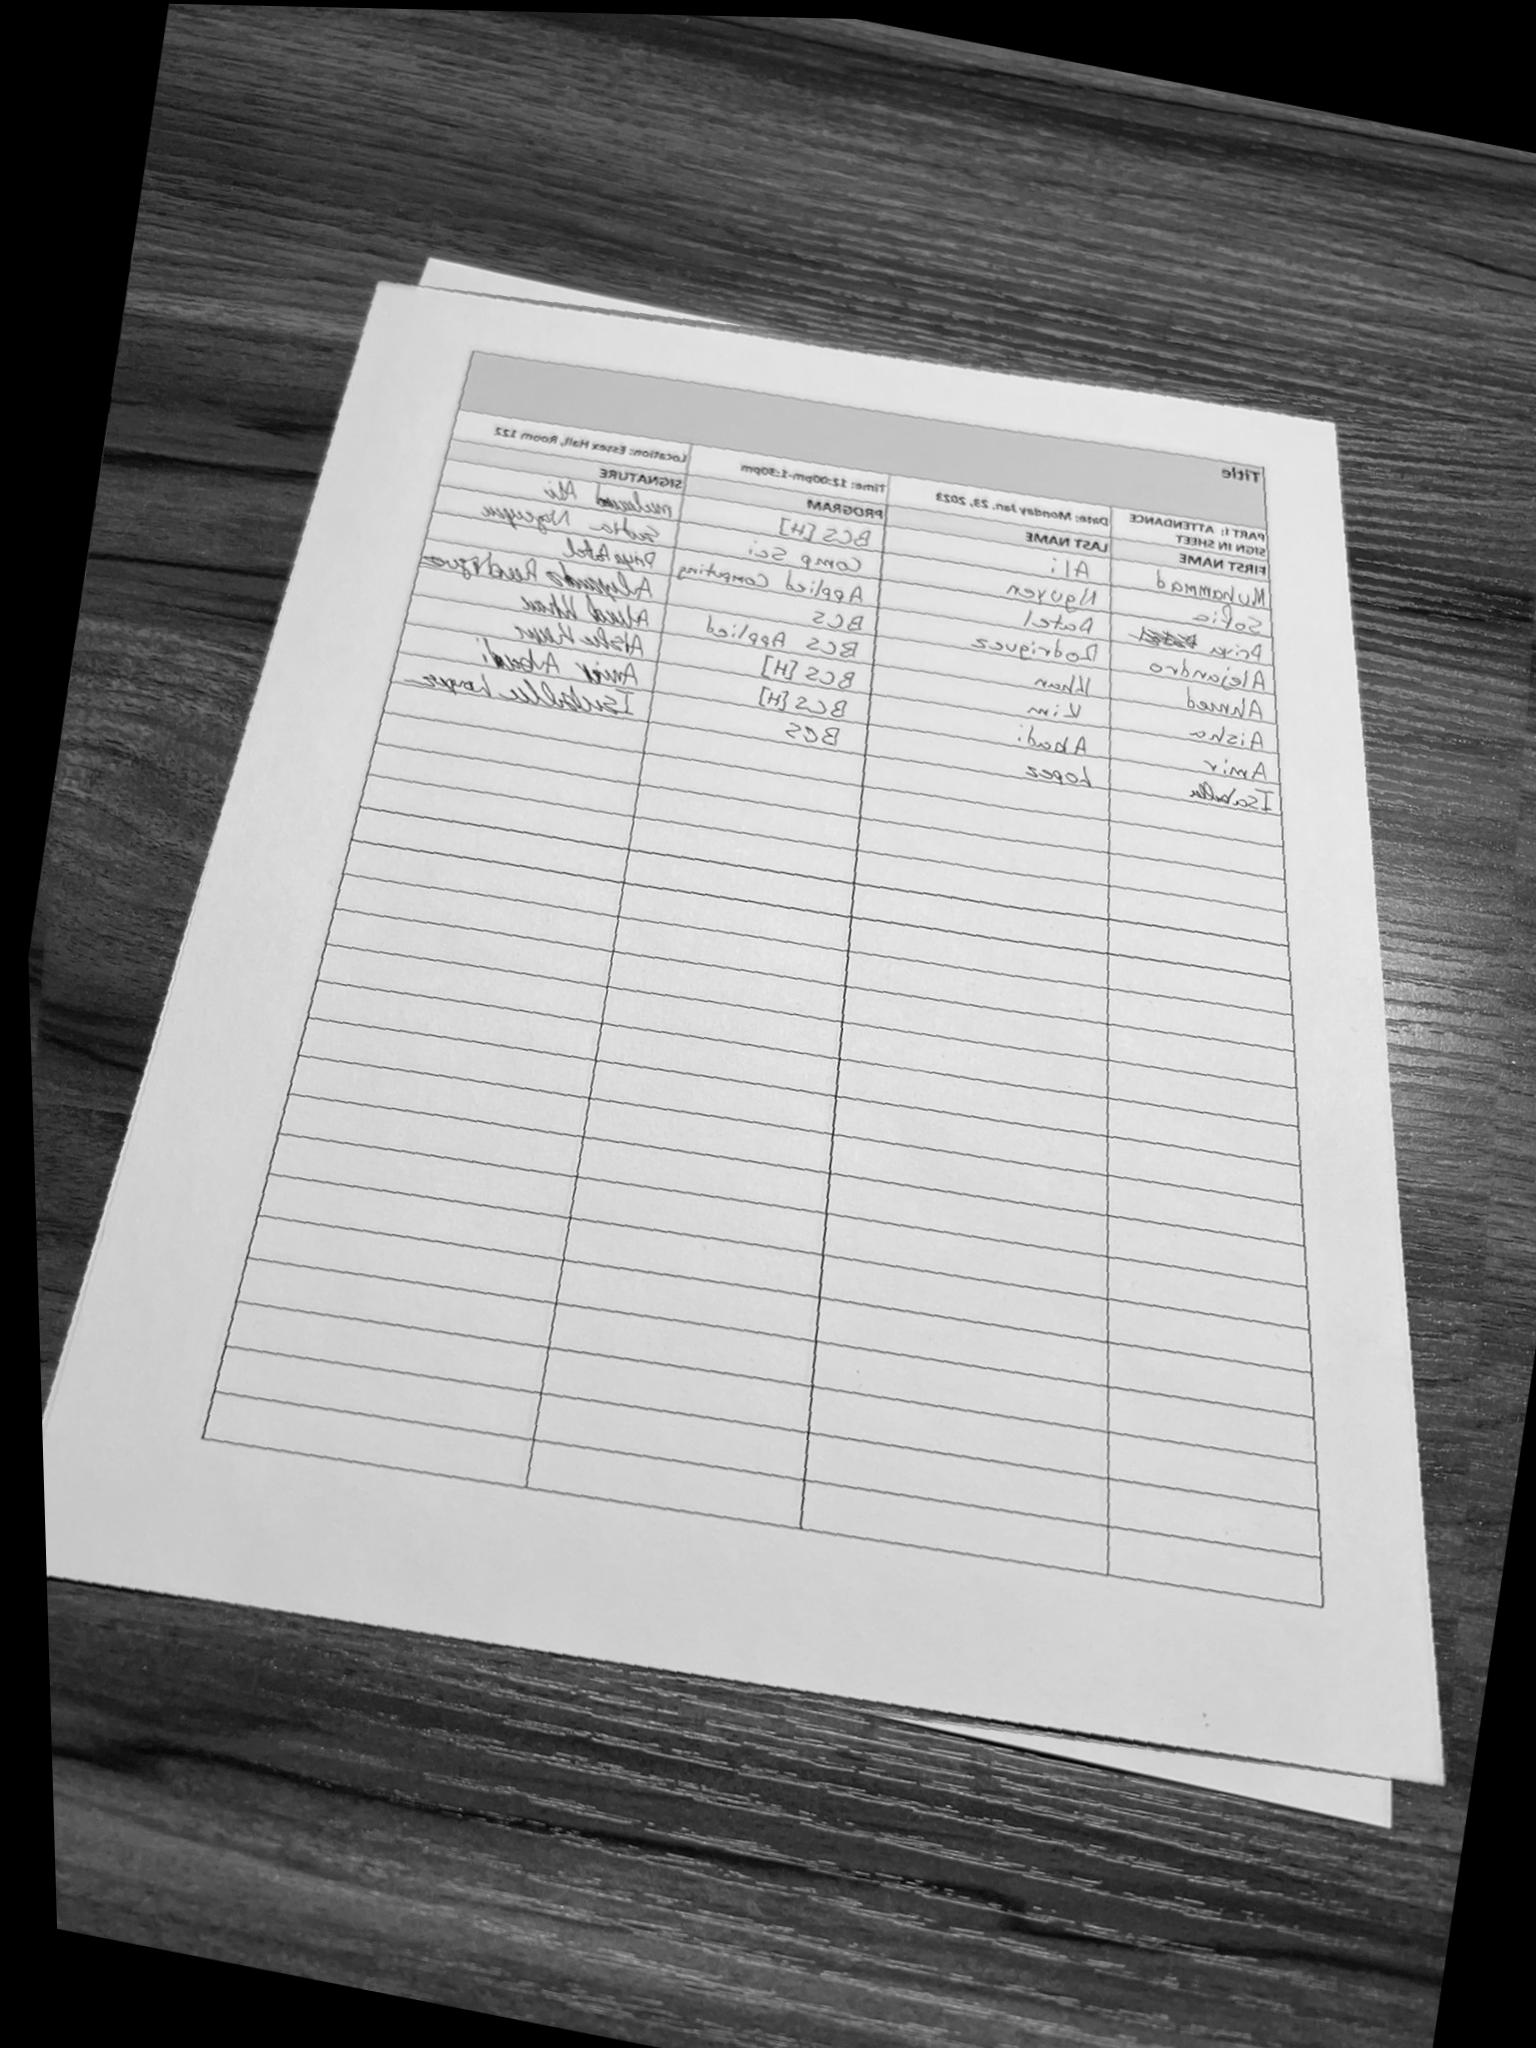 Title
PART1: ATTENDANCE SIGN IN SHEET Date: Monday Jan. 23, 2023 Time: 12:00pm-1:30pm Location: Essex Hall, Room 122
FIRST NAME LAST NAME PROGRAM SIGNATURE
Muhammad Ali BCS [H] Ali
Sofia Nguyen Comp Sci Nguyen
Priya Patel Applied Computing Priya Patel
Alejandro Rodriguez BCS Alejandro Rodriguez
Ahmed Khan BCS Applied Ahmed Khan
Aisha Kim BCS [H] Aisha
Amir Abadi BCS [H] Amir Abadi
Isabella Lopez BCS Isabella Lopez